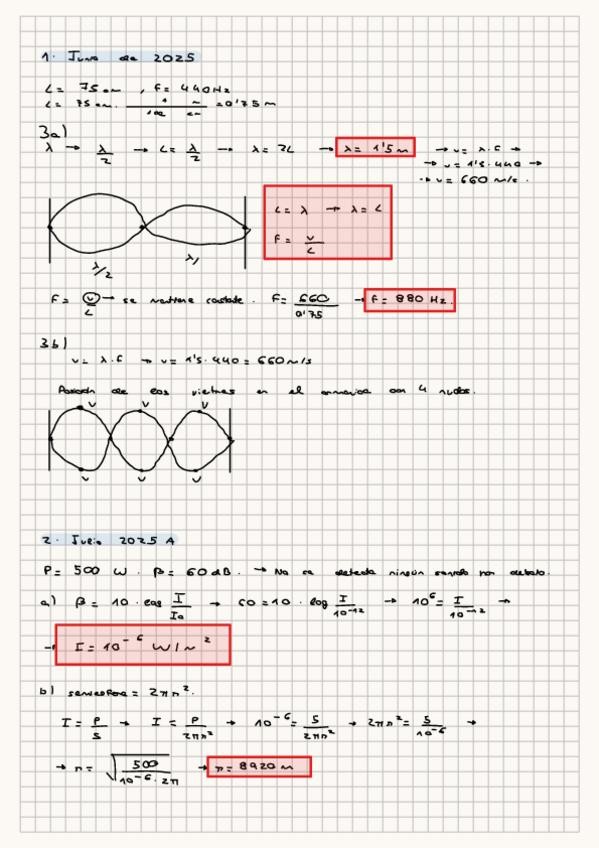 1. Junio de 2025
L = 75 cm , f = 440Hz
L = 75 cm · 1 m / 100 cm = 0'75 m
3a)
λ → λ/2 → L = λ/2 → λ = 2L → λ = 1'5 m → v = λ·f →
→ v = 1'5·440 →
→ v = 660 m/s.
L = λ → λ = L
F = v/L
λ/2 λ/
F = v/L → se mantiene constante. F = 660/0'75 → f = 880 Hz.
3b)
v = λ·f → v = 1'5·440 = 660 m/s
Posición de los vientres en el armónico con 4 nudos.
v v v
v v v
2. Julio 2025 A
P = 500 W. β = 60 dB. → No se detecta ningún sonido por debajo.
a) β = 10 · log I/I₀ → 60 = 10 · log I/10⁻¹² → 10⁶ = I/10⁻¹² →
→ I = 10⁻⁶ W/m²
b) semiesfera = 2πr².
I = P/S → I = P/2πr² → 10⁻⁶ = 5/2πr² → 2πr² = 5/10⁻⁶ →
→ r = √(500/10⁻⁶·2π) → r = 8920 m